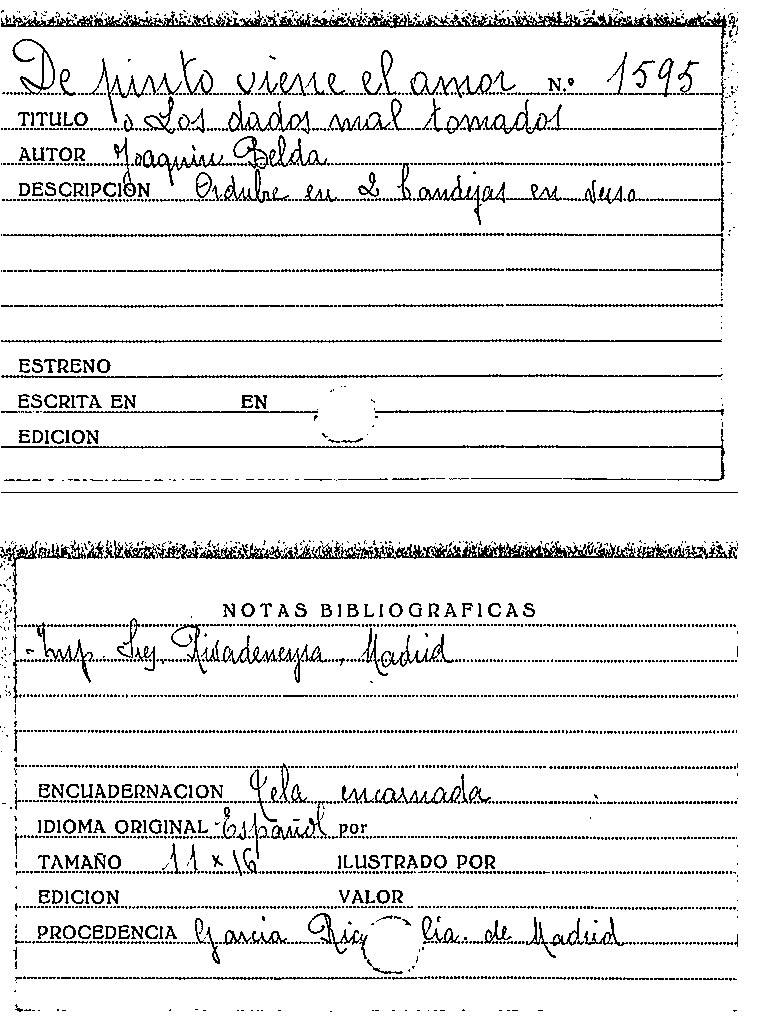 De pinto viene el amor N.º 1595
TITULO o Los dados mal tomados
AUTOR Joaquin Belda
DESCRIPCION Ordubre en 2 bandejas en verso
ESTRENO
ESCRITA EN EN
EDICION
NOTAS BIBLIOGRAFICAS
-Imp. Suc. Rivadeneyra, Madrid
ENCUADERNACION Tela encarnada
IDIOMA ORIGINAL -Español por
TAMAÑO 11 x 16 ILUSTRADO POR
EDICION VALOR
PROCEDENCIA Garcia Rico Cía. de Madrid